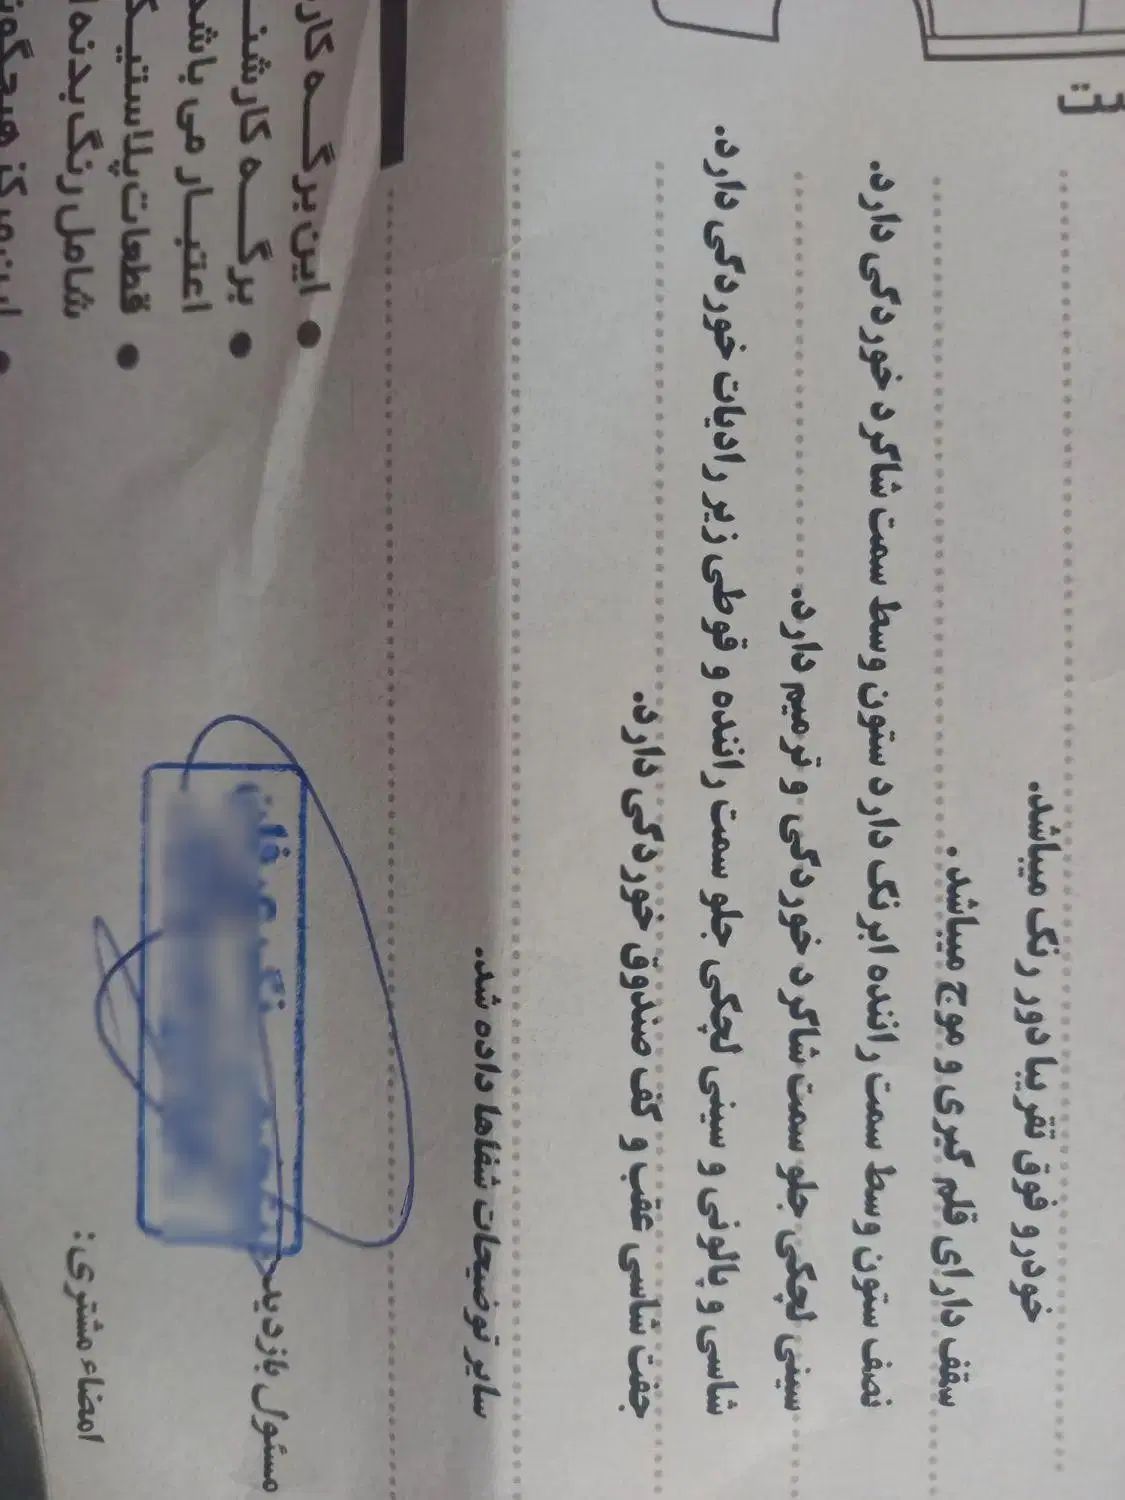 خودرو فوق تقریبا دور رنگ میباشد.
سقف دارای قلم گیری و موج میباشد.
نصف ستون وسط سمت راننده ابرنگ دارد ستون وسط سمت شاگرد خوردگی دارد.
سینی لچکی جلو سمت شاگرد خوردگی و ترمیم دارد.
شاسی و پالونی و سینی لچکی جلو سمت راننده و قوطی زیر رادیات خوردگی دارد.
جفت شاسی عقب و کف صندوق خوردگی دارد.
سایر توضیحات شفاها داده شد.
• این برگه
• برگه
اعتبار می
• قطعات
شامل رنگ بدنه
مسئول بازدید
امضاء مشتری: